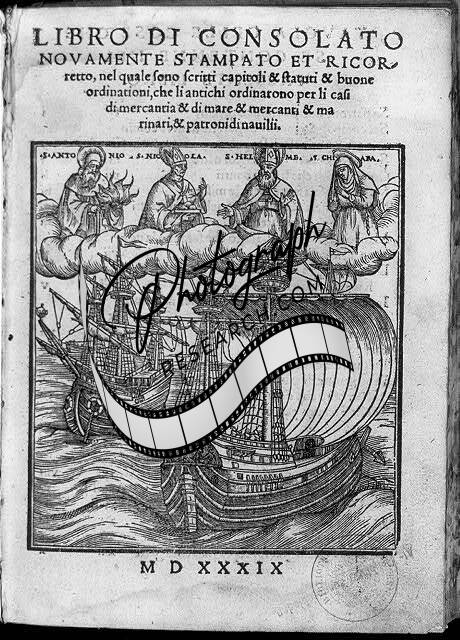 LIBRO DI CONSOLATO
NOVAMENTE STAMPATO ET RICOR-
retto, nel quale sono scritti capitoli & statuti & buone
ordinationi, che li antichi ordinarono per li casi
di mercantia & di mare & mercanti & ma
rinari, & patroni di navilii.
·S·ANTO NIO ·S·NIC OLA· S·HEL MB ·S·CHI ARA·
Photograph
RESEARCH.COM
M D XXXIX